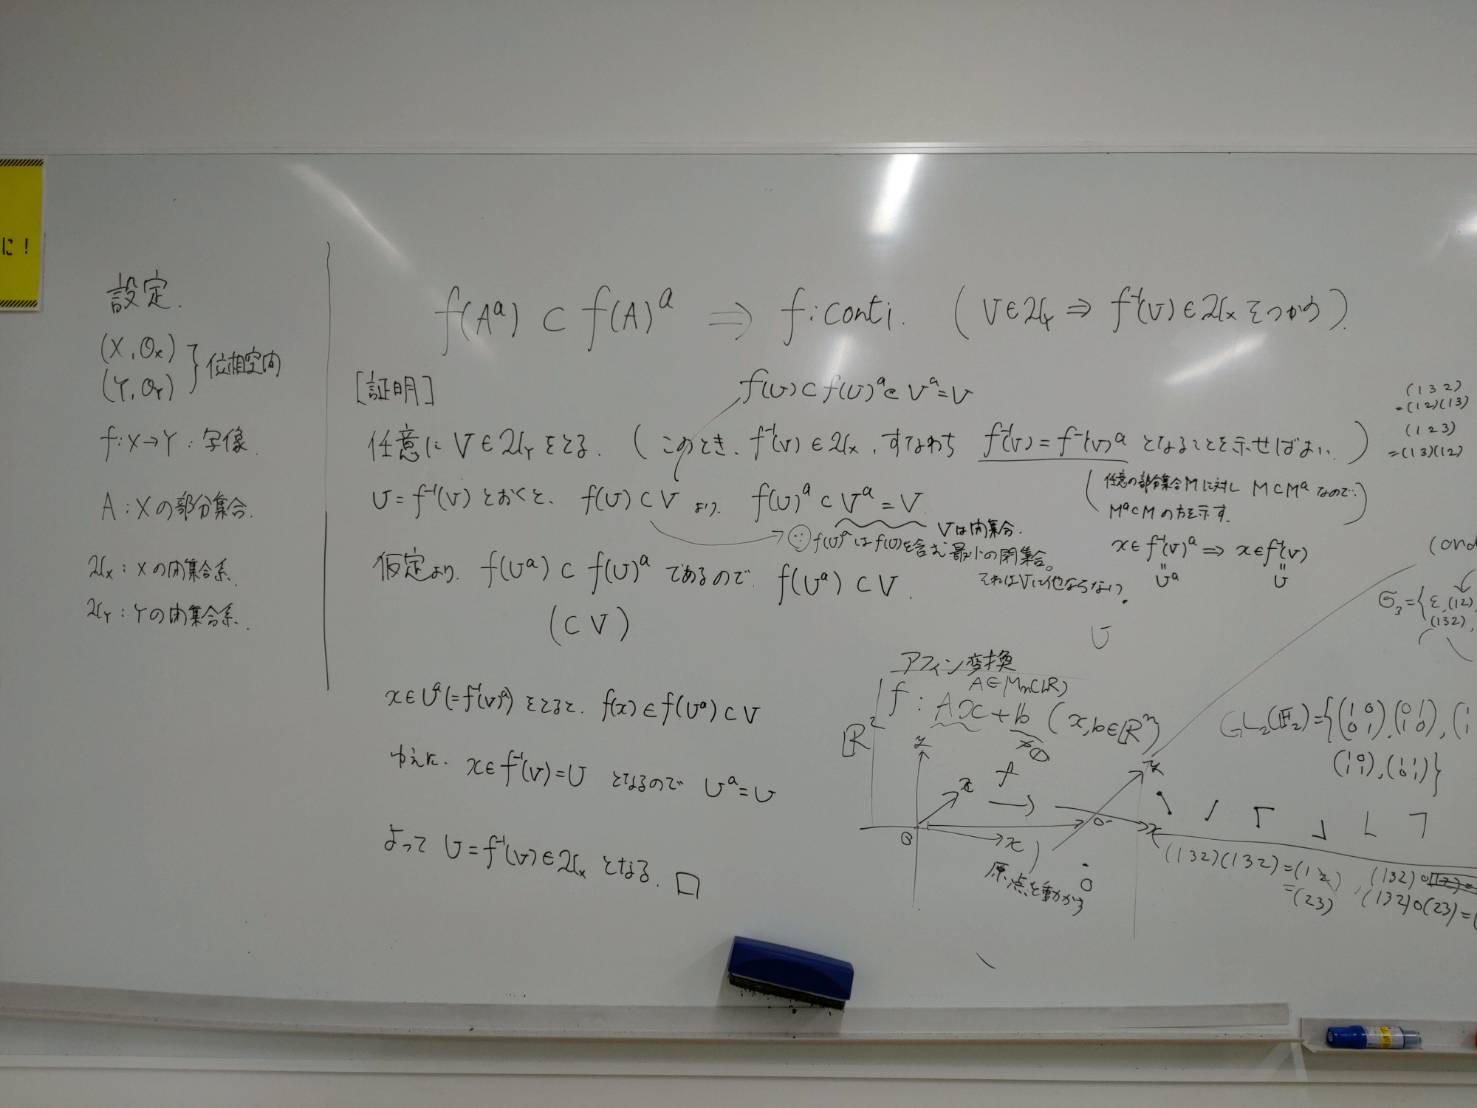 に!
設定.
(X, O_X)
(Y, O_Y) } 位相空間
f: X→Y : 写像.
A : Xの部分集合.
𝔄_X : Xの閉集合系.
𝔄_Y : Yの閉集合系.
f(A^a) ⊂ f(A)^a ⇒ f: conti. ( V∈𝔄_Y ⇒ f^{-1}(V)∈𝔄_X をつかう ).
[証明]
f(U)⊂f(U)^a⊂V^a=V
任意に V∈𝔄_Y をとる. ( このとき, f^{-1}(V)∈𝔄_X, すなわち f^{-1}(V)=f^{-1}(V)^a となることを示せばよい. )
( 任意の部分集合Mに対し M⊂M^a なので,
M^a⊂M の方を示す. )
U=f^{-1}(V) とおくと, f(U)⊂V より, f(U)^a⊂V^a=V.
Vは閉集合.
f(U)^a は f(U)を含む最小の閉集合。
それはVに他ならない.
x∈f^{-1}(V)^a ⇒ x∈f^{-1}(V)
= U^a = U
仮定より, f(U^a)⊂f(U)^a であるので, f(U^a)⊂V.
(⊂V)
U
x∈U^a(=f^{-1}(V)^a) をとると, f(x)∈f(U^a)⊂V
ゆえに, x∈f^{-1}(V)=U となるので U^a=U
よって U=f^{-1}(V)∈𝔄_X となる. □
アフィン変換
A∈M_n(ℝ)
f : Ax+b (x,b∈ℝ^n)
ℝ^2
f
x
原点を動かす
(132)
=(12)(13)
(123)
=(13)(12)
(ord
𝔖_3={ε,(12)
(132),
GL_2(𝔽_2)={(1 0 / 0 1),(0 1 / 1 0),
(1 0 / 1 1),(1 1 / 0 1)}
(132)(132)=(12)
=(23)
(132)∘
(132)∘(23)=